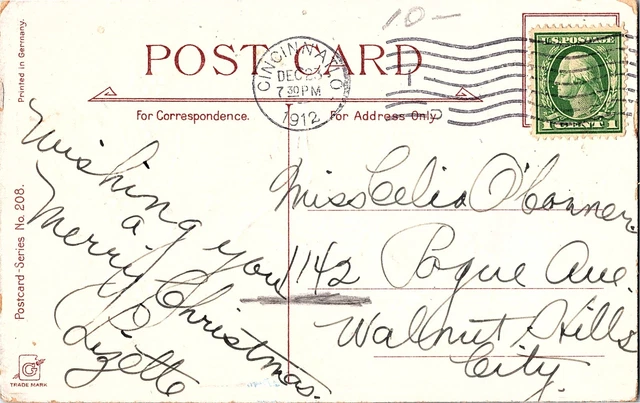 10-
POST CARD
CINCINNATI, O.
DEC 23
7 30 PM
1912
1
U.S. POSTAGE
For Correspondence.
For Address Only.
Printed in Germany.
Postcard-Series No. 208.
Wishing you
a
Merry Christmas.
Lizette
Miss Celia O'Connor.
1142 Pogue Ave.
Walnut Hills
City.
G
TRADE MARK